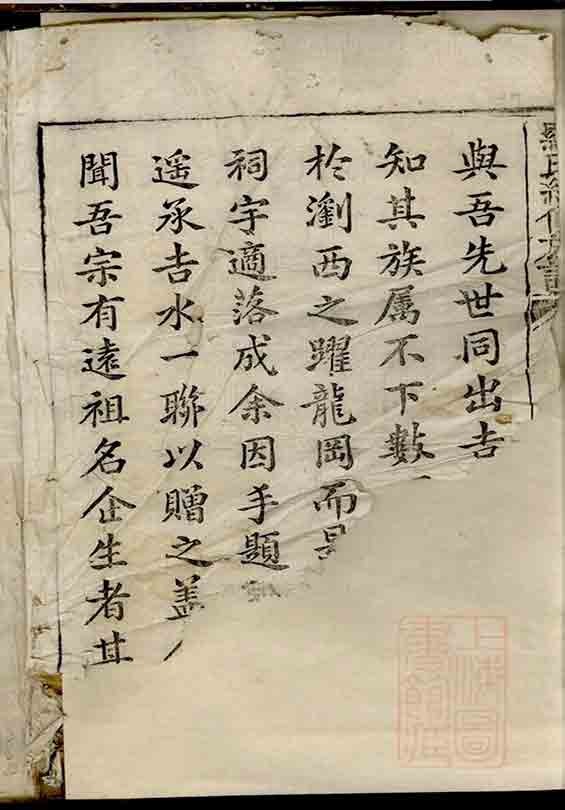 與吾先世同出吉
知其族属不下數
扵瀏西之躍龍岡而
祠宇適落成余因手題
遥承吉水一聯以贈之蓋
聞吾宗有遠祖名企生者
上海圖
書館藏